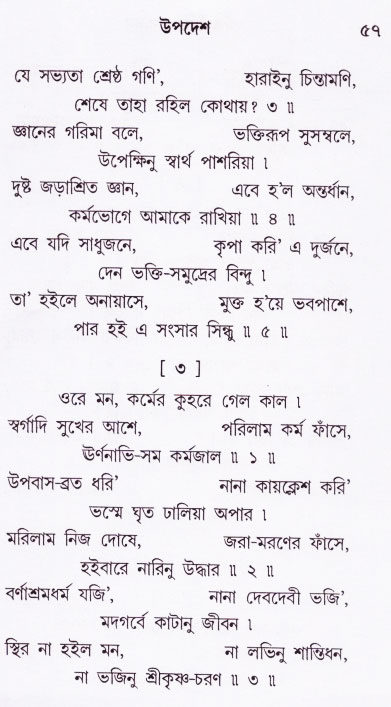 উপদেশ ৫৭
যে সভ্যতা শ্রেষ্ঠ গণি', হারাইনু চিন্তামণি,
শেষে তাহা রহিল কোথায়? ৩ ॥
জ্ঞানের গরিমা বলে, ভক্তিরূপ সুসম্বলে,
উপেক্ষিনু স্বার্থ পাশরিয়া ।
দুষ্ট জড়াশ্রিত জ্ঞান, এবে হ'ল অন্তর্ধান,
কর্মভোগে আমাকে রাখিয়া ॥ ৪ ॥
এবে যদি সাধুজনে, কৃপা করি' এ দুর্জনে,
দেন ভক্তি-সমুদ্রের বিন্দু ।
তা' হইলে অনায়াসে, মুক্ত হ'য়ে ভবপাশে,
পার হই এ সংসার সিন্ধু ॥ ৫ ॥
[ ৩ ]
ওরে মন, কর্মের কুহরে গেল কাল ।
স্বর্গাদি সুখের আশে, পরিলাম কর্ম ফাঁসে,
ঊর্ণনাভি-সম কর্মজাল ॥ ১ ॥
উপবাস-ব্রত ধরি' নানা কায়ক্লেশ করি'
ভস্মে ঘৃত ঢালিয়া অপার ।
মরিলাম নিজ দোষে, জরা-মরণের ফাঁসে,
হইবারে নারিনু উদ্ধার ॥ ২ ॥
বর্ণাশ্রমধর্ম যজি', নানা দেবদেবী ভজি',
মদগর্বে কাটানু জীবন ।
স্থির না হইল মন, না লভিনু শান্তিধন,
না ভজিনু শ্রীকৃষ্ণ-চরণ ॥ ৩ ॥